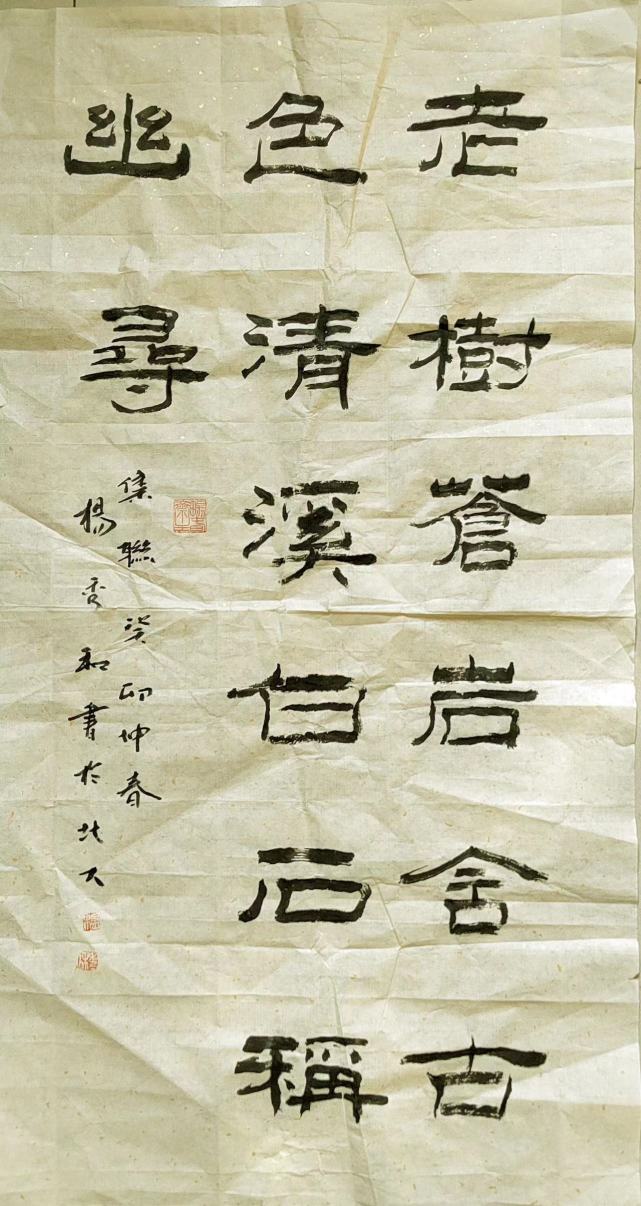 老樹蒼岩含古
色清溪白石稱
幽尋
集聯癸卯仲春
楊秀和書於北